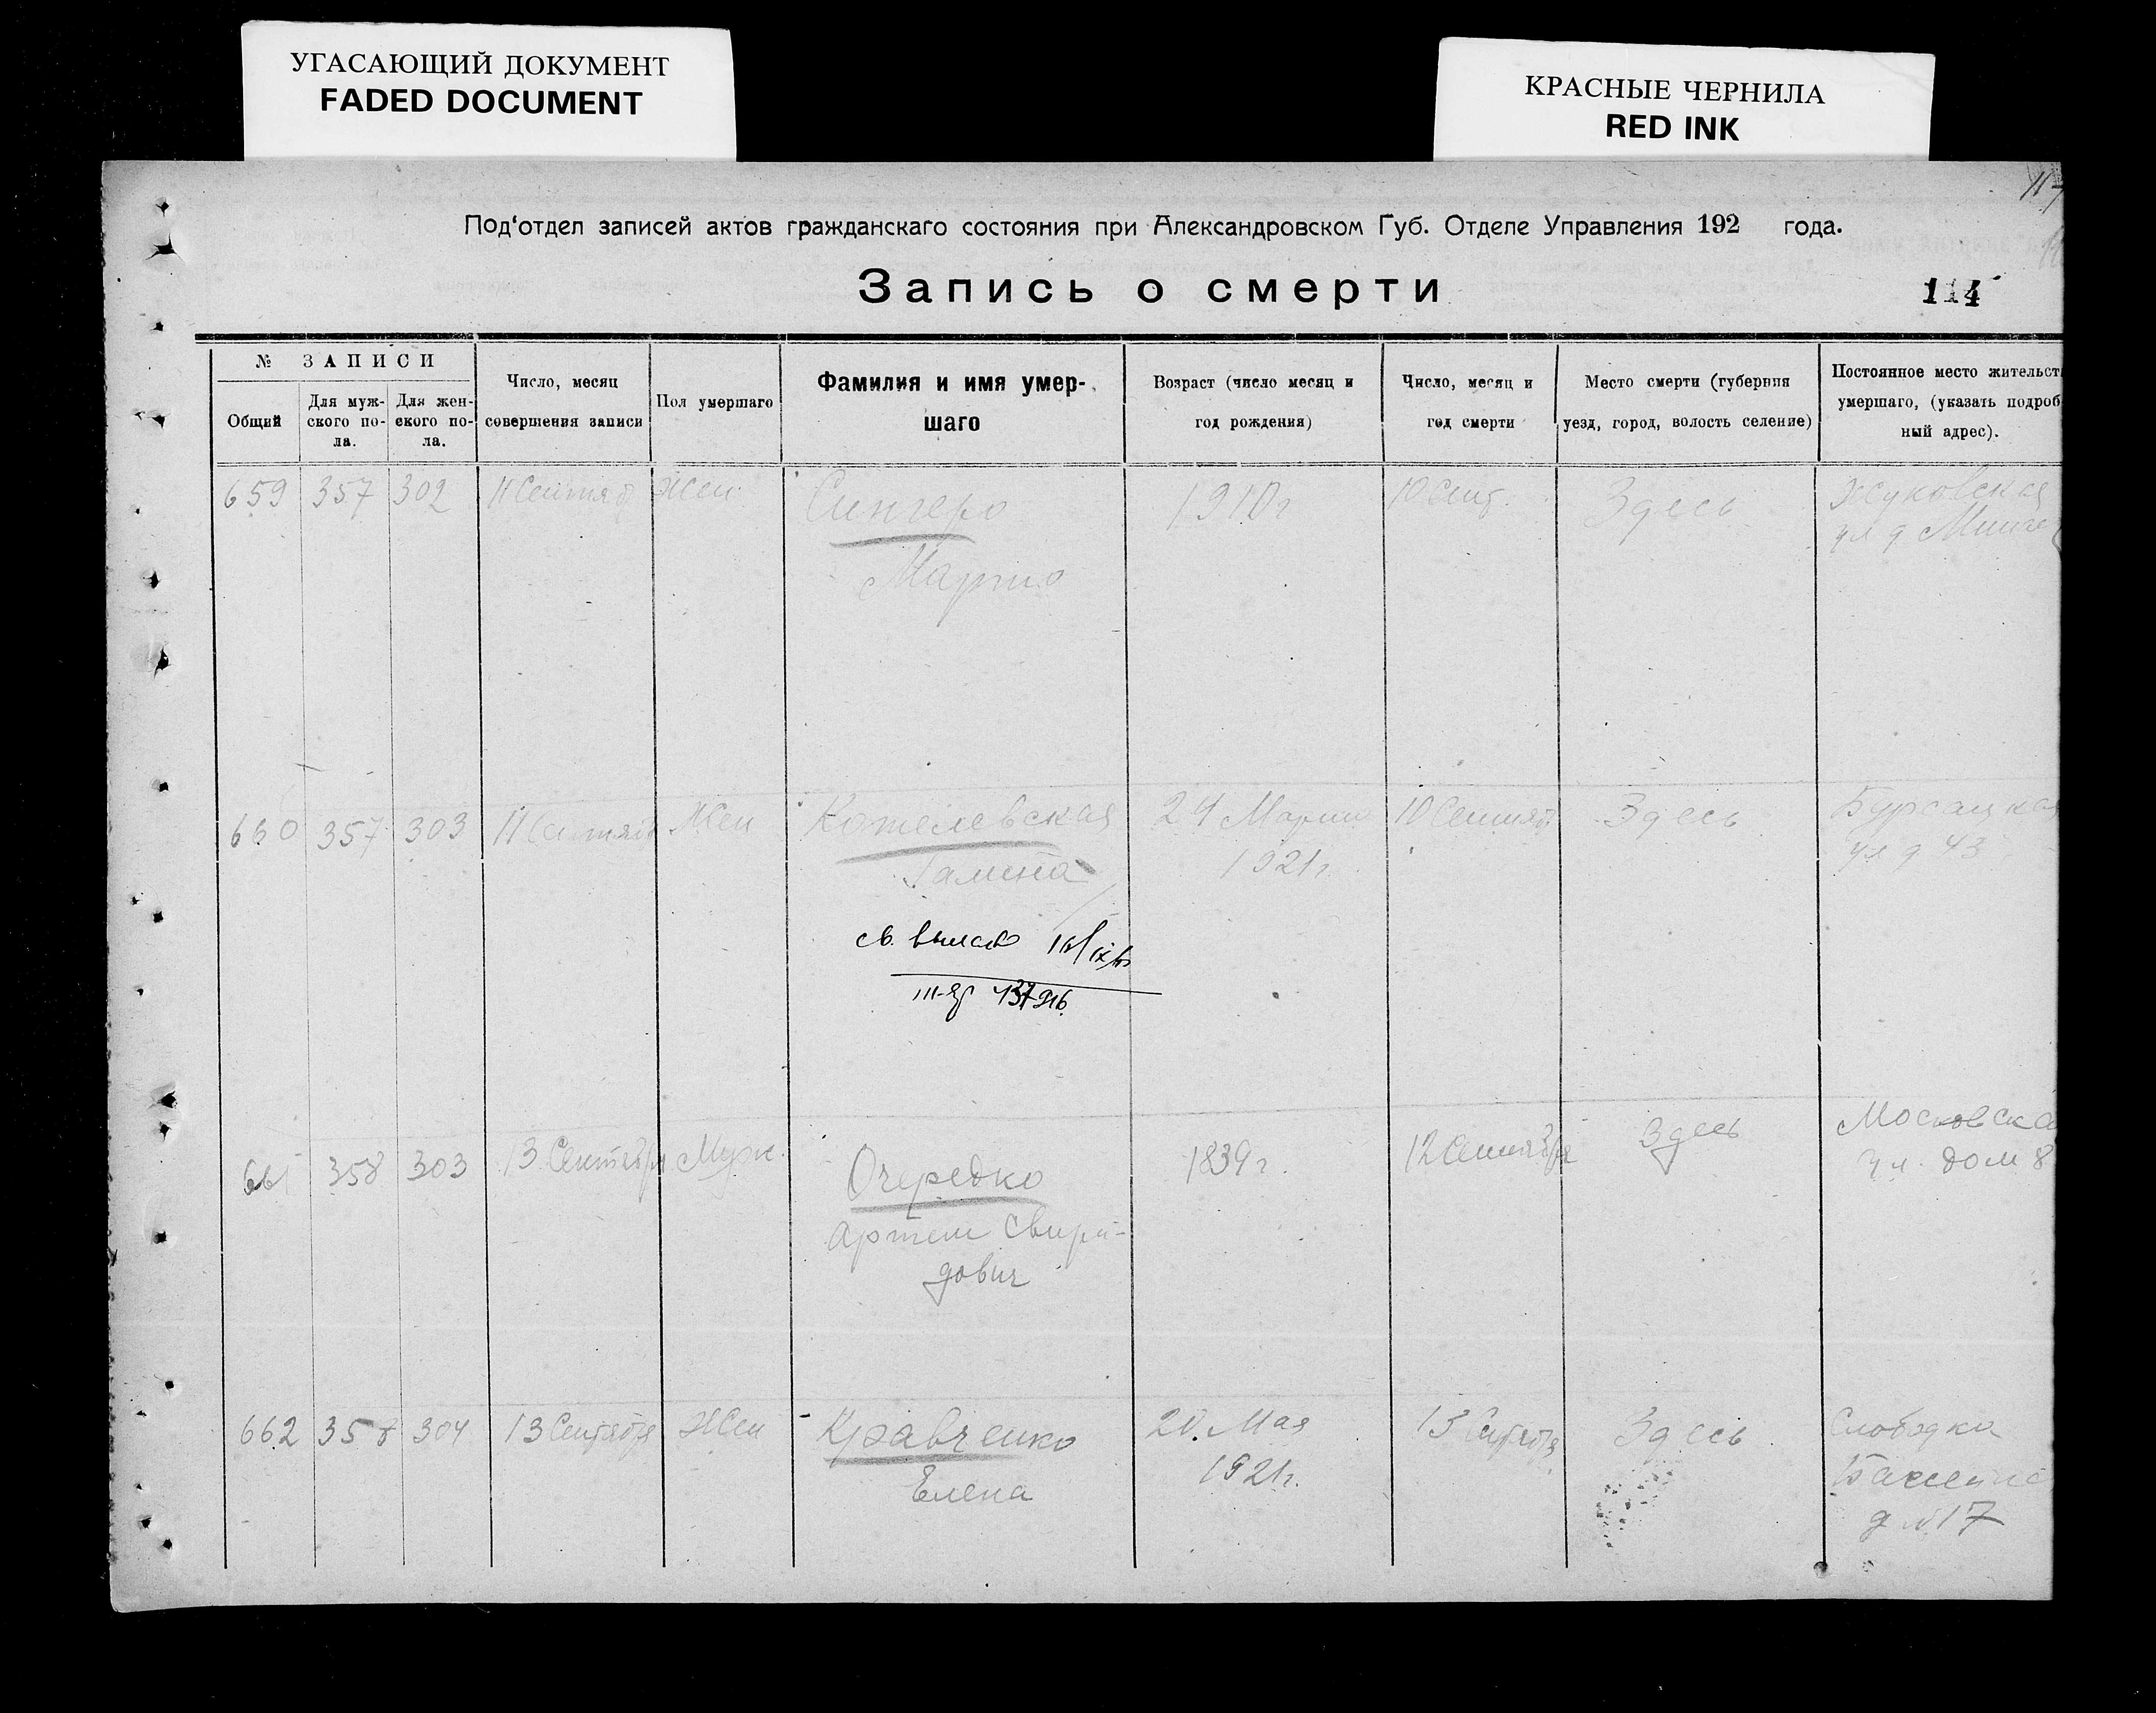 УГАСАЮЩИЙ ДОКУМЕНТ
FADED DOCUMENT
КРАСНЫЕ ЧЕРНИЛА
RED INK
Под‘отдел записей актов гражданскаго состояния при Александровском Губ. Отделе Управления 192 года.
Запись о смерти
114
№ ЗАПИСИ
Общий
Для муж-
ского по-
ла.
Для жен-
ского по-
ла.
Число, месяц
совершения записи
Пол умершаго
Фамилия и имя умер-
шаго
Возраст (число месяц и
год рождения)
Число, месяц и
год смерти
Место смерти (губерния
уезд, город, волость селение)
Постоянное место жительст
умершаго, (указать подроб-
ный адрес).
659 357 302 Жен. 1910г 10 Сент. Здесь Жуковская
ул д
660 357 303 Жен Котелевская 24 Марта Здесь
1921г. ул д 43
661 358 303 13 Сентября Муж. Очередко 1839г. 12 Сентября Здесь Московска
ул. дом 8
Артем Свири-
дович
662 358 304 13 Сентября Жен Кравченко 20. Мая Сентября Здесь Слободка
Елена 1921г.
д №17